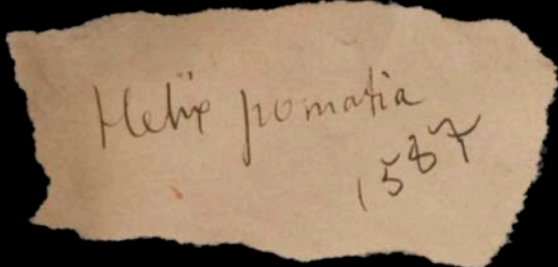 Helix pomatia
1587